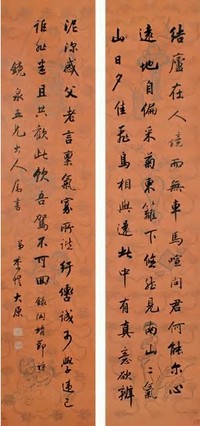 結廬在人境而無車馬喧問君何能爾心
遠地自偏采菊東籬下悠然見南山々氣
山日夕佳飛鳥相與還此中有真意欲辨
泥深感父老言稟氣寡所諧紆轡誠可學違己
詎非迷且共歡此飲吾駕不可回 錄陶靖節詩
鏡泉五兄大人屬書 弟李 大原